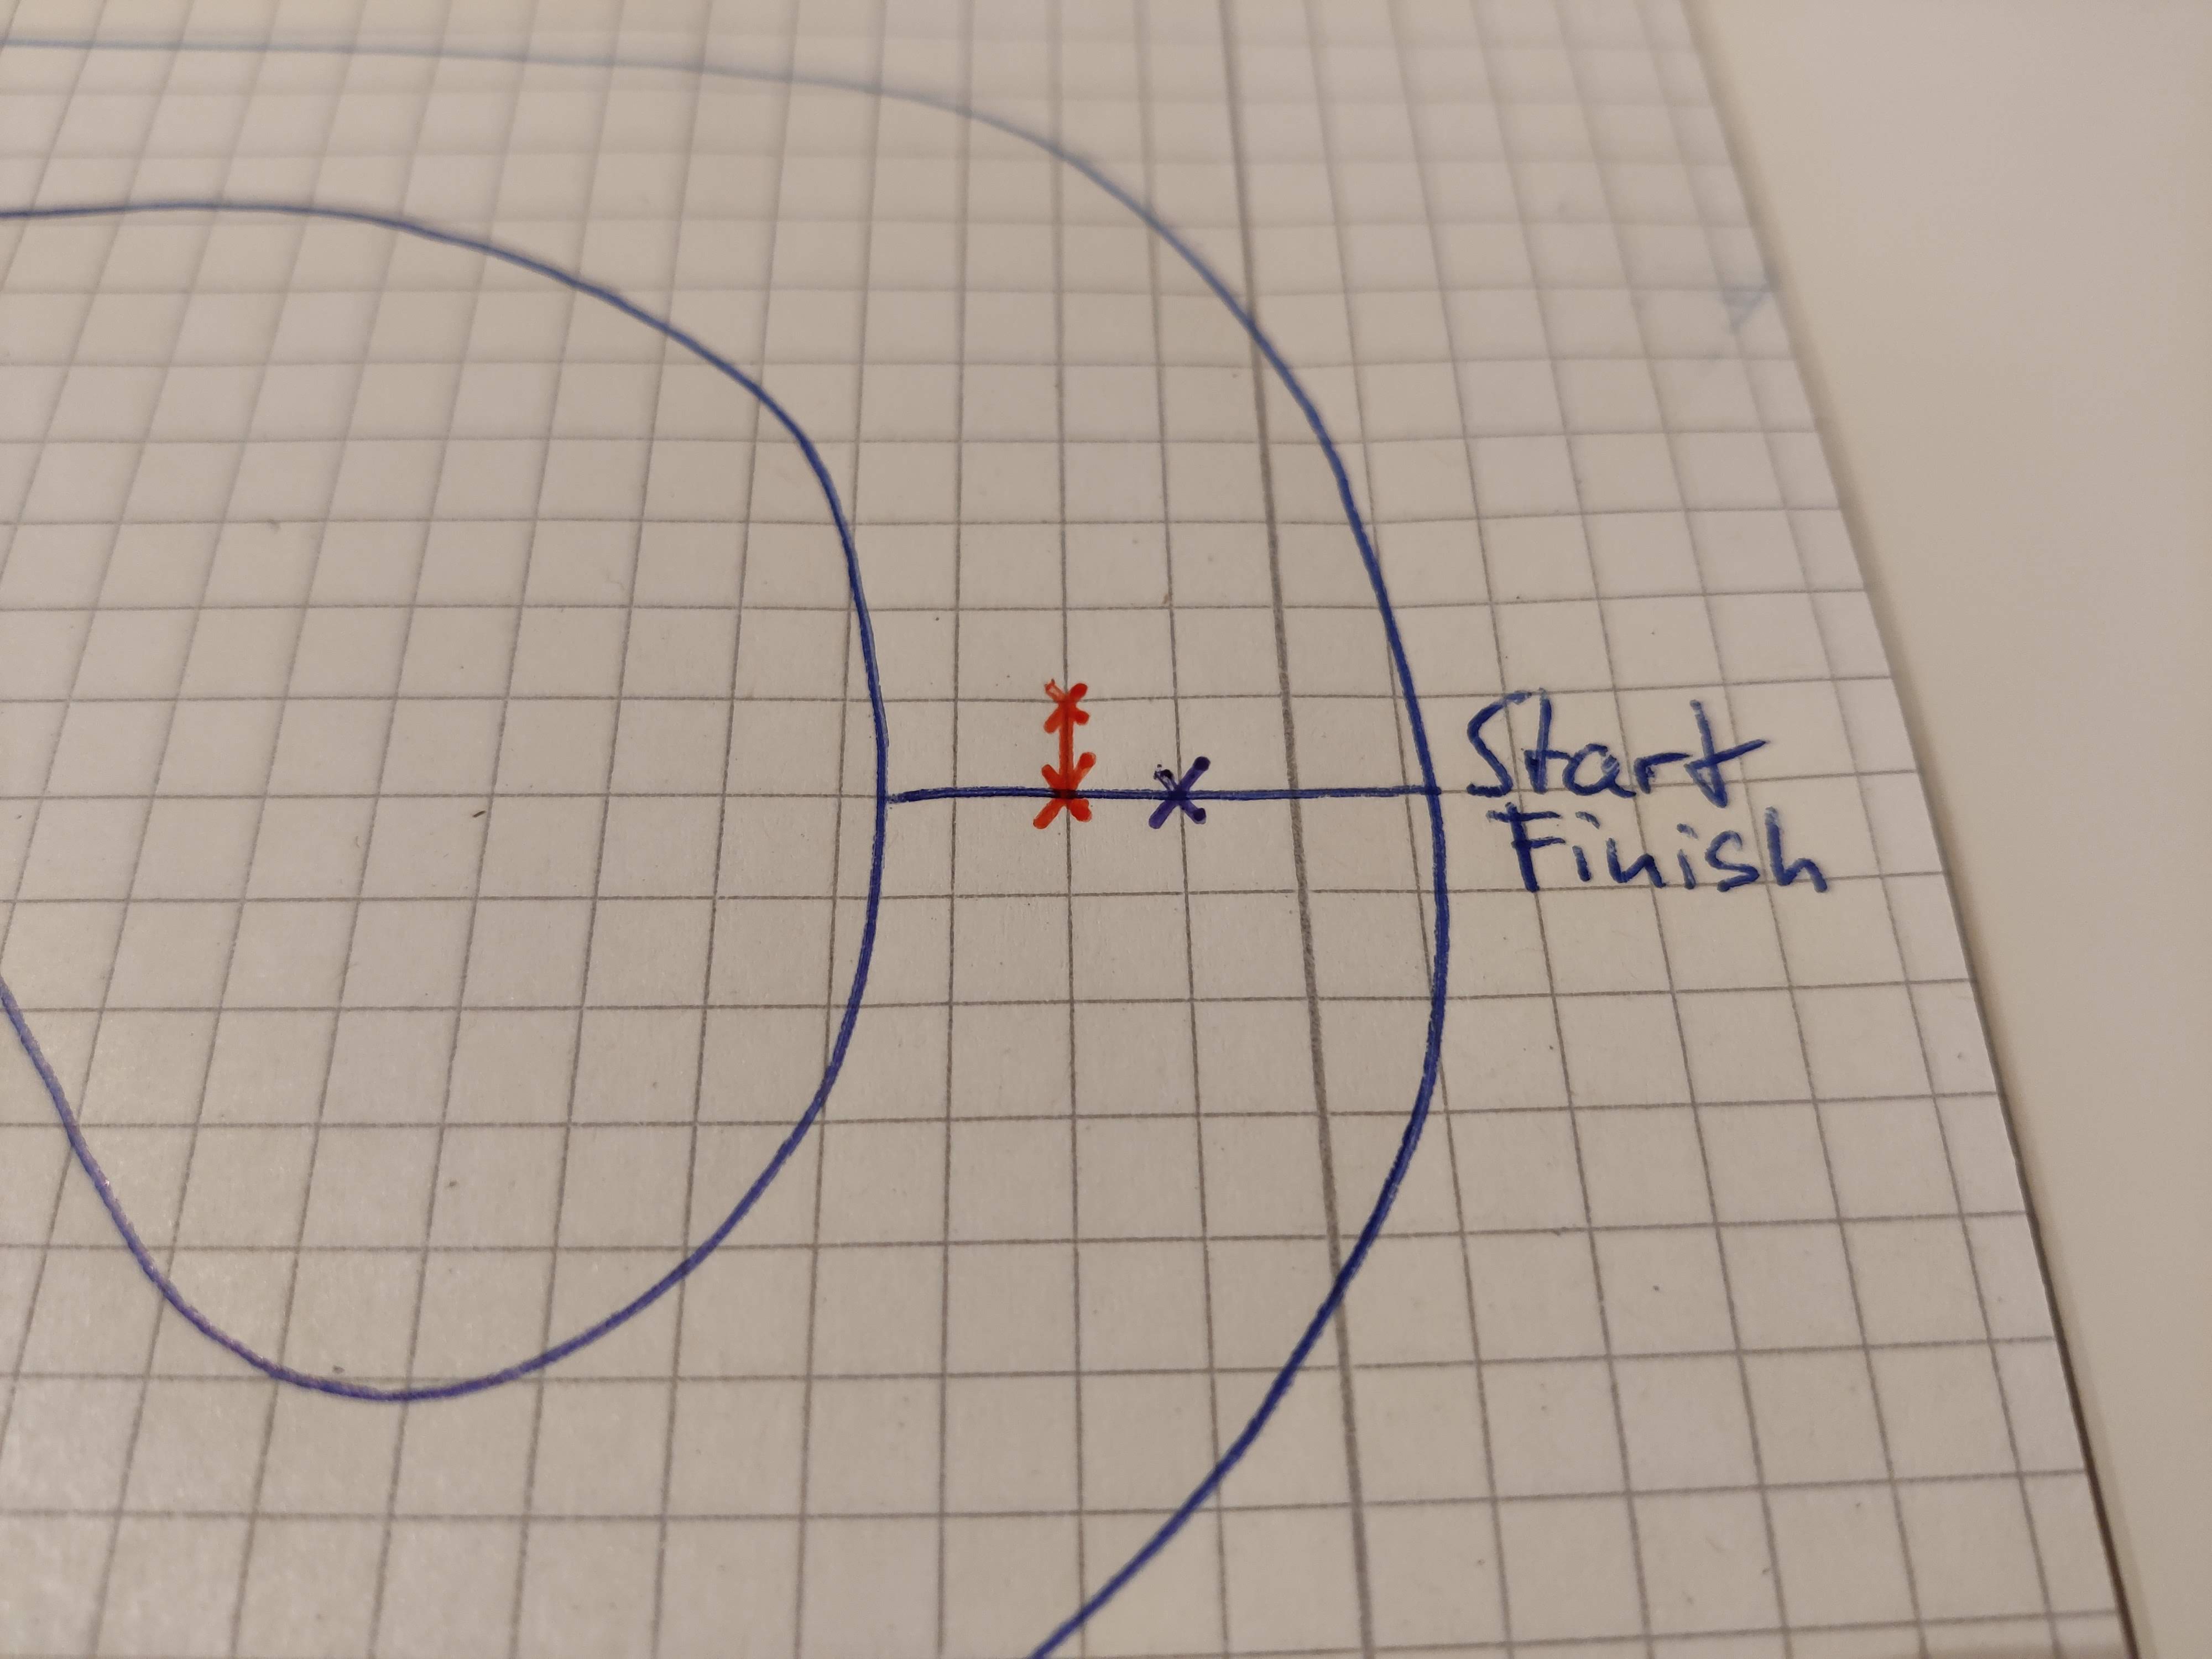 Start
Finish